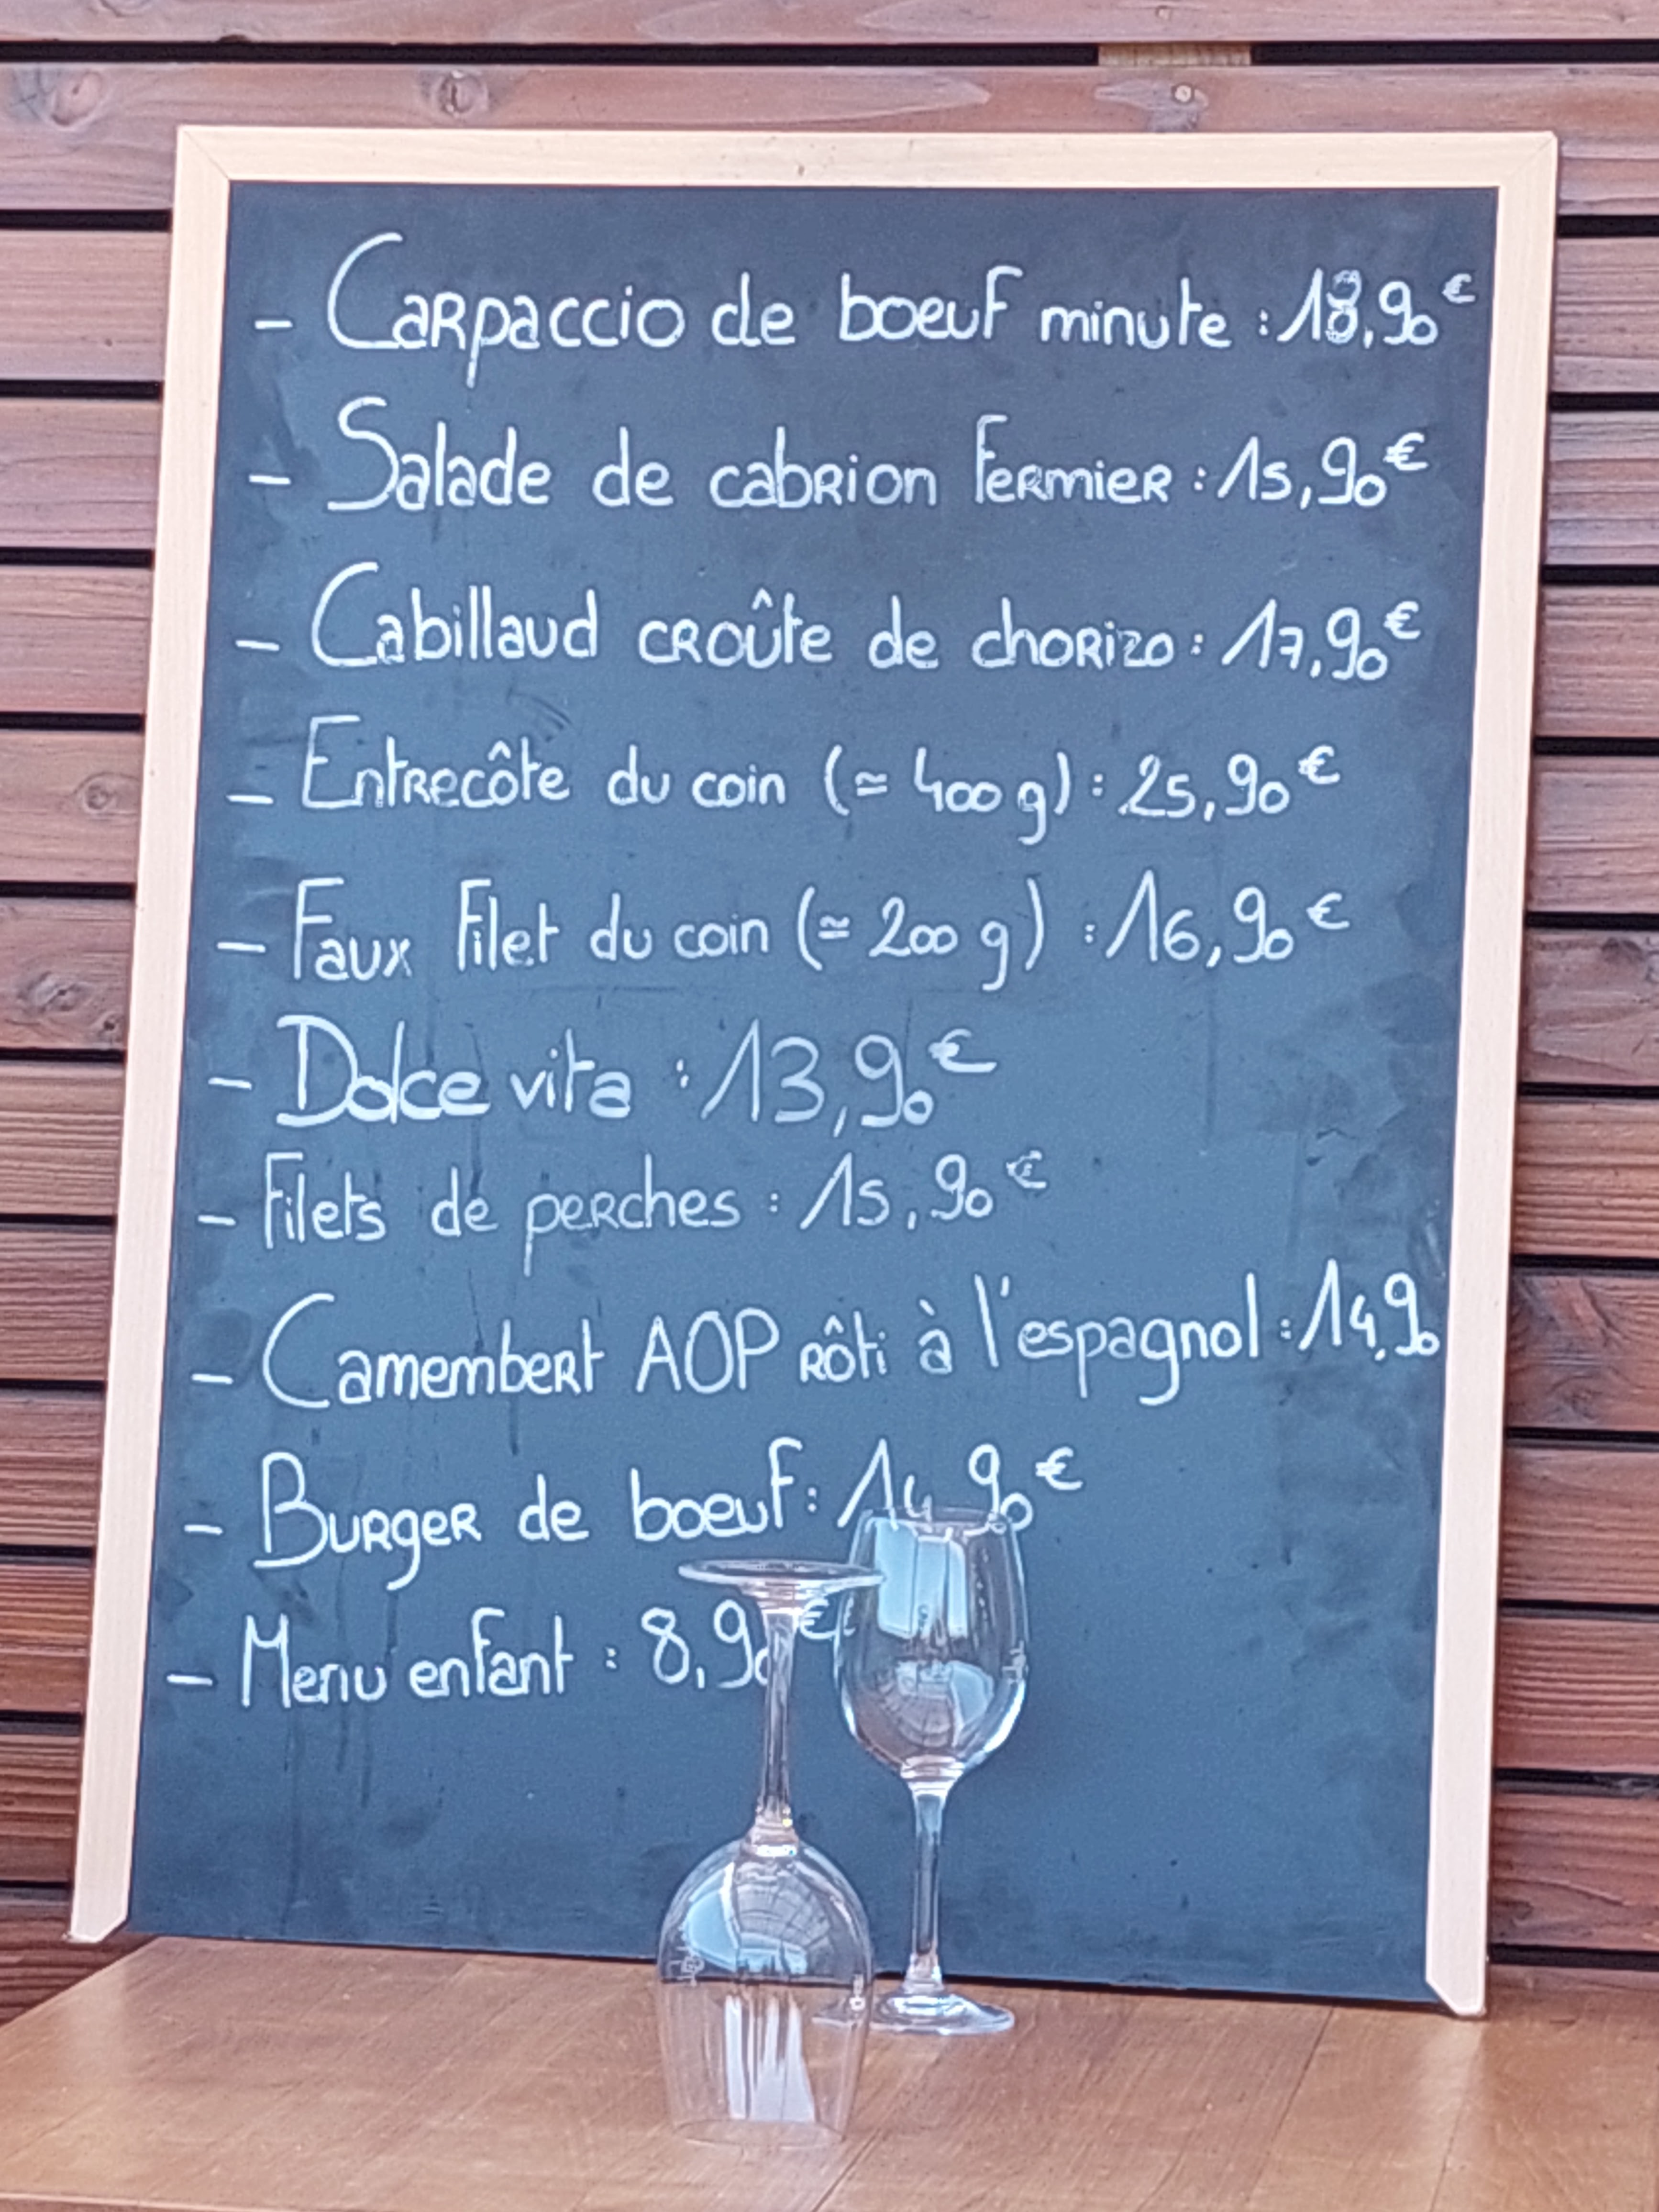 - Carpaccio de boeuf minute : 18,90€
- Salade de cabrion fermier : 15,90€
- Cabillaud croûte de chorizo : 17,90€
- Entrecôte du coin (≃ 400 g) : 25,90€
- Faux filet du coin (≃ 200 g) : 16,90€
- Dolce vita : 13,90€
- Filets de perches : 15,90€
- Camembert AOP rôti à l'espagnol : 14,90
- Burger de boeuf : 14,90€
- Menu enfant : 8,90€